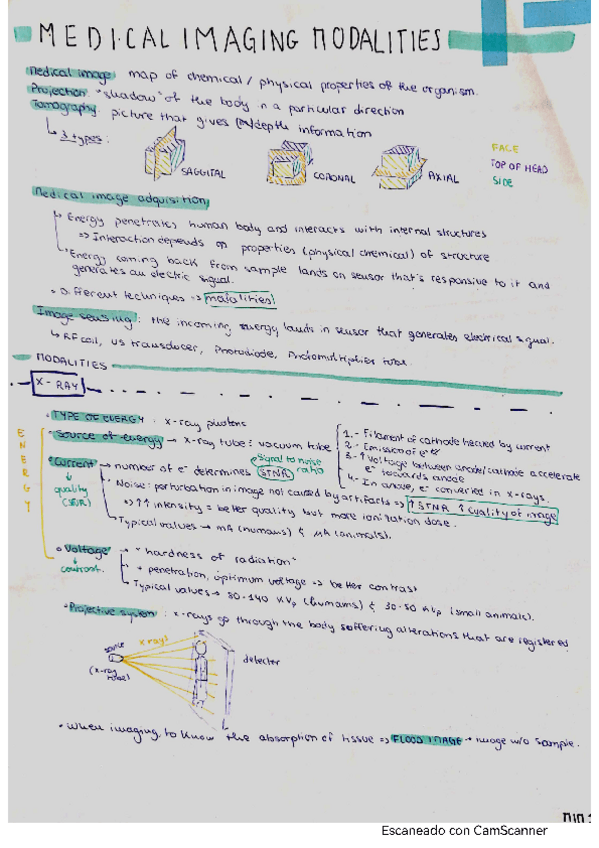 MEDICAL IMAGING MODALITIES
Medical image: map of chemical / physical properties of the organism.
Projection: "shadow" of the body in a particular direction
Tomography: picture that gives depth information
↳ 3 types:
SAGGITAL
CORONAL
AXIAL
FACE
TOP OF HEAD
SIDE
Medical image adquisition
Energy penetrates human body and interacts with internal structures
⇒ Interaction depends on properties (physical chemical) of structure
Energy coming back from sample lands on sensor that's responsive to it and
generates an electric signal.
Different techniques ⇒ modalities
Image sensing: the incoming energy lands in sensor that generates electrical signal.
↳ RF coil, US transducer, Photodiode, Photomultiplier tube.
MODALITIES
X-RAY
ENERGY
• TYPE OF ENERGY: x-ray photons
• Source of energy → x-ray tube: vacuum tube
1.- Filament of cathode heated by current
2.- Emission of e⁻
3.- ↑ Voltage between anode/cathode accelerate
e⁻ towards anode
4.- In anode, e⁻ converted in x-rays.
• Current → number of e⁻ determines STNR
signal to noise ratio
↓
quality
(SNR)
Noise: perturbation in image not caused by artifacts ⇒ ↑ STNR ↑ Quality of image
⇒ ↑↑ intensity = better quality but more ionitation dose.
Typical values → mA (humans) & µA (animals).
• Voltage → "hardness of radiation"
↓
contrast.
+ penetration, optimum voltage ⇒ better contrast
Typical values → 80-140 KVp (humans) & 30-50 KVp (small animals).
• Projective system: x-rays go through the body suffering alterations that are registered
source
(x-ray
tube)
x rays
detector
• When imaging to know the absorption of tissue ⇒ FLOOD IMAGE → image w/o sample.
Escaneado con CamScanner